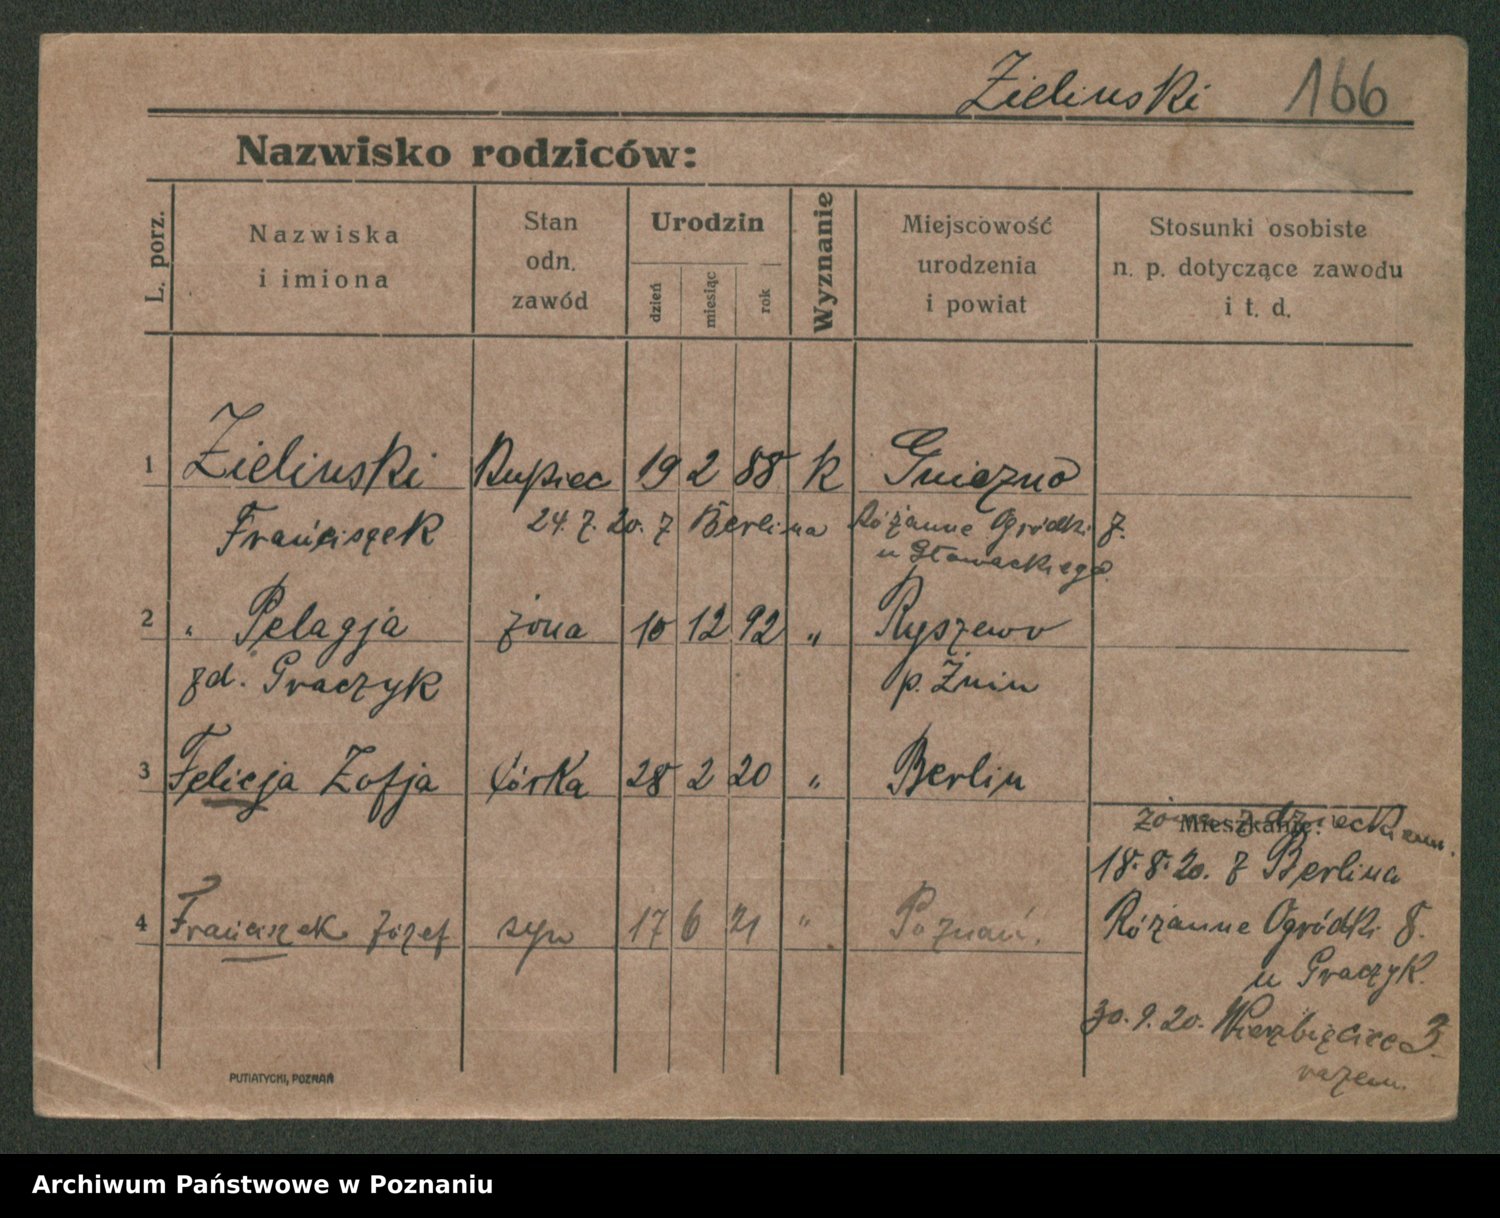 Zielinski 166
Nazwisko rodziców:
L. porz.
Nazwiska
i imiona
Stan
odn.
zawód
Urodzin
dzień
miesiąc
rok
Wyznanie
Miejscowość
urodzenia
i powiat
Stosunki osobiste
n. p. dotyczące zawodu
i t. d.
1 Zielinski Kupiec 19 2 88 k Gniezno
Franciszek 24.7.20. z Berlina Różanne Ogródki 7.
u Słowackiego.
2 „ Pelagja żona 10 12 92 „ Ryszewo
zd. Graczyk p. Żnin
3 Felicja Zofja córka 28 2 20 „ Berlin
Mieszkanie:
żona z dzieckiem.
18.8.20. z Berlina
4 Franciszek Józef syn 17 6 21 „ Poznań.
Różanne Ogródki 8.
u Graczyk.
30.9.20. Wierzbięcice 3.
razem.
PUTIATYCKI, POZNAŃ
Archiwum Państwowe w Poznaniu